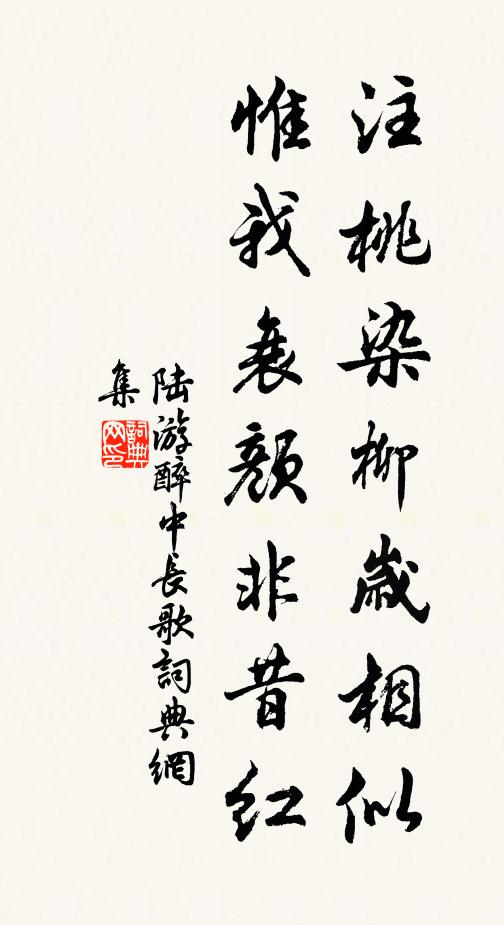 注桃染柳歲相似
惟我衰顏非昔紅
陸游醉中長歌詞典網
集
詞典
网印